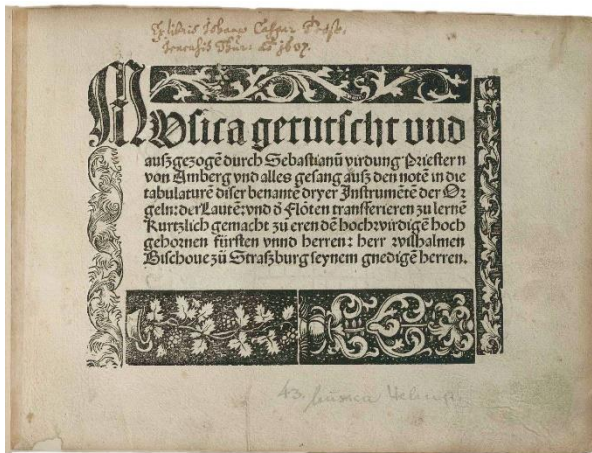 Ex libris Johann Caspar
1607.
Musica getutscht und
außgezogē durch Sebastianū virdung Priestern
von Amberg vnd alles gesang auß den notē in die
tabulaturē diser benantē dryer Instrumētē der Or
geln: der Lautē: vnd d̄ Flöten transferieren zu lernē
Kurtzlich gemacht zu eren dē hochwirdigē hoch
gebornen fürsten vnnd herren: herr wilhalmen
Bischoue zů Straßburg seynem gnedigē herren.